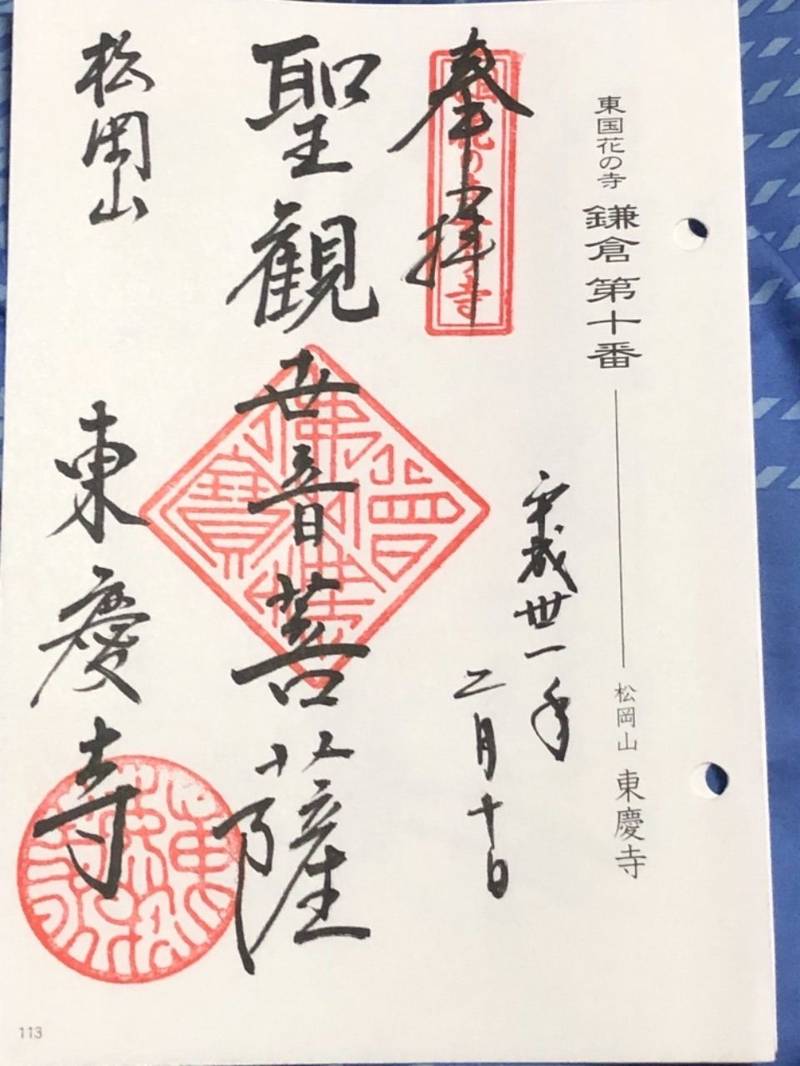 東国花の寺 鎌倉 第十番 松岡山 東慶寺
奉拝
平成卅一年二月十日
聖観世音菩薩
松岡山 東慶寺
佛法僧寳
113